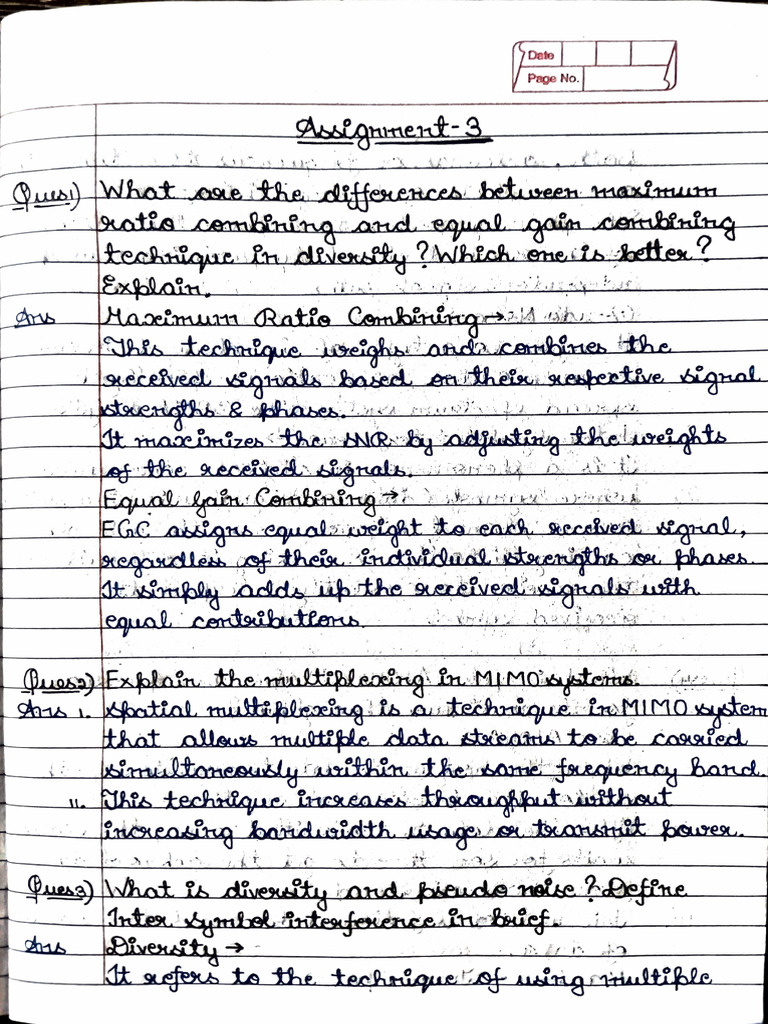 Date
Page No.
Assignment-3
Ques1) What are the differences between maximum
ratio combining and equal gain combining
technique in diversity? Which one is better?
Explain.
Ans Maximum Ratio Combining →
This technique weighs and combines the
received signals based on their respective signal
strengths & phases.
It maximizes the SNR by adjusting the weights
of the received signals.
Equal Gain Combining →
EGC assigns equal weight to each received signal,
regardless of their individual strengths or phases.
It simply adds up the received signals with
equal contributions.
Ques2) Explain the multiplexing in MIMO systems.
Ans i. Spatial multiplexing is a technique in MIMO system
that allows multiple data streams to be carried
simultaneously within the same frequency band.
ii. This technique increases throughput without
increasing bandwidth usage or transmit power.
Ques3) What is diversity and pseudo noise? Define
Inter symbol interference in brief.
Ans Diversity →
It refers to the technique of using multiple